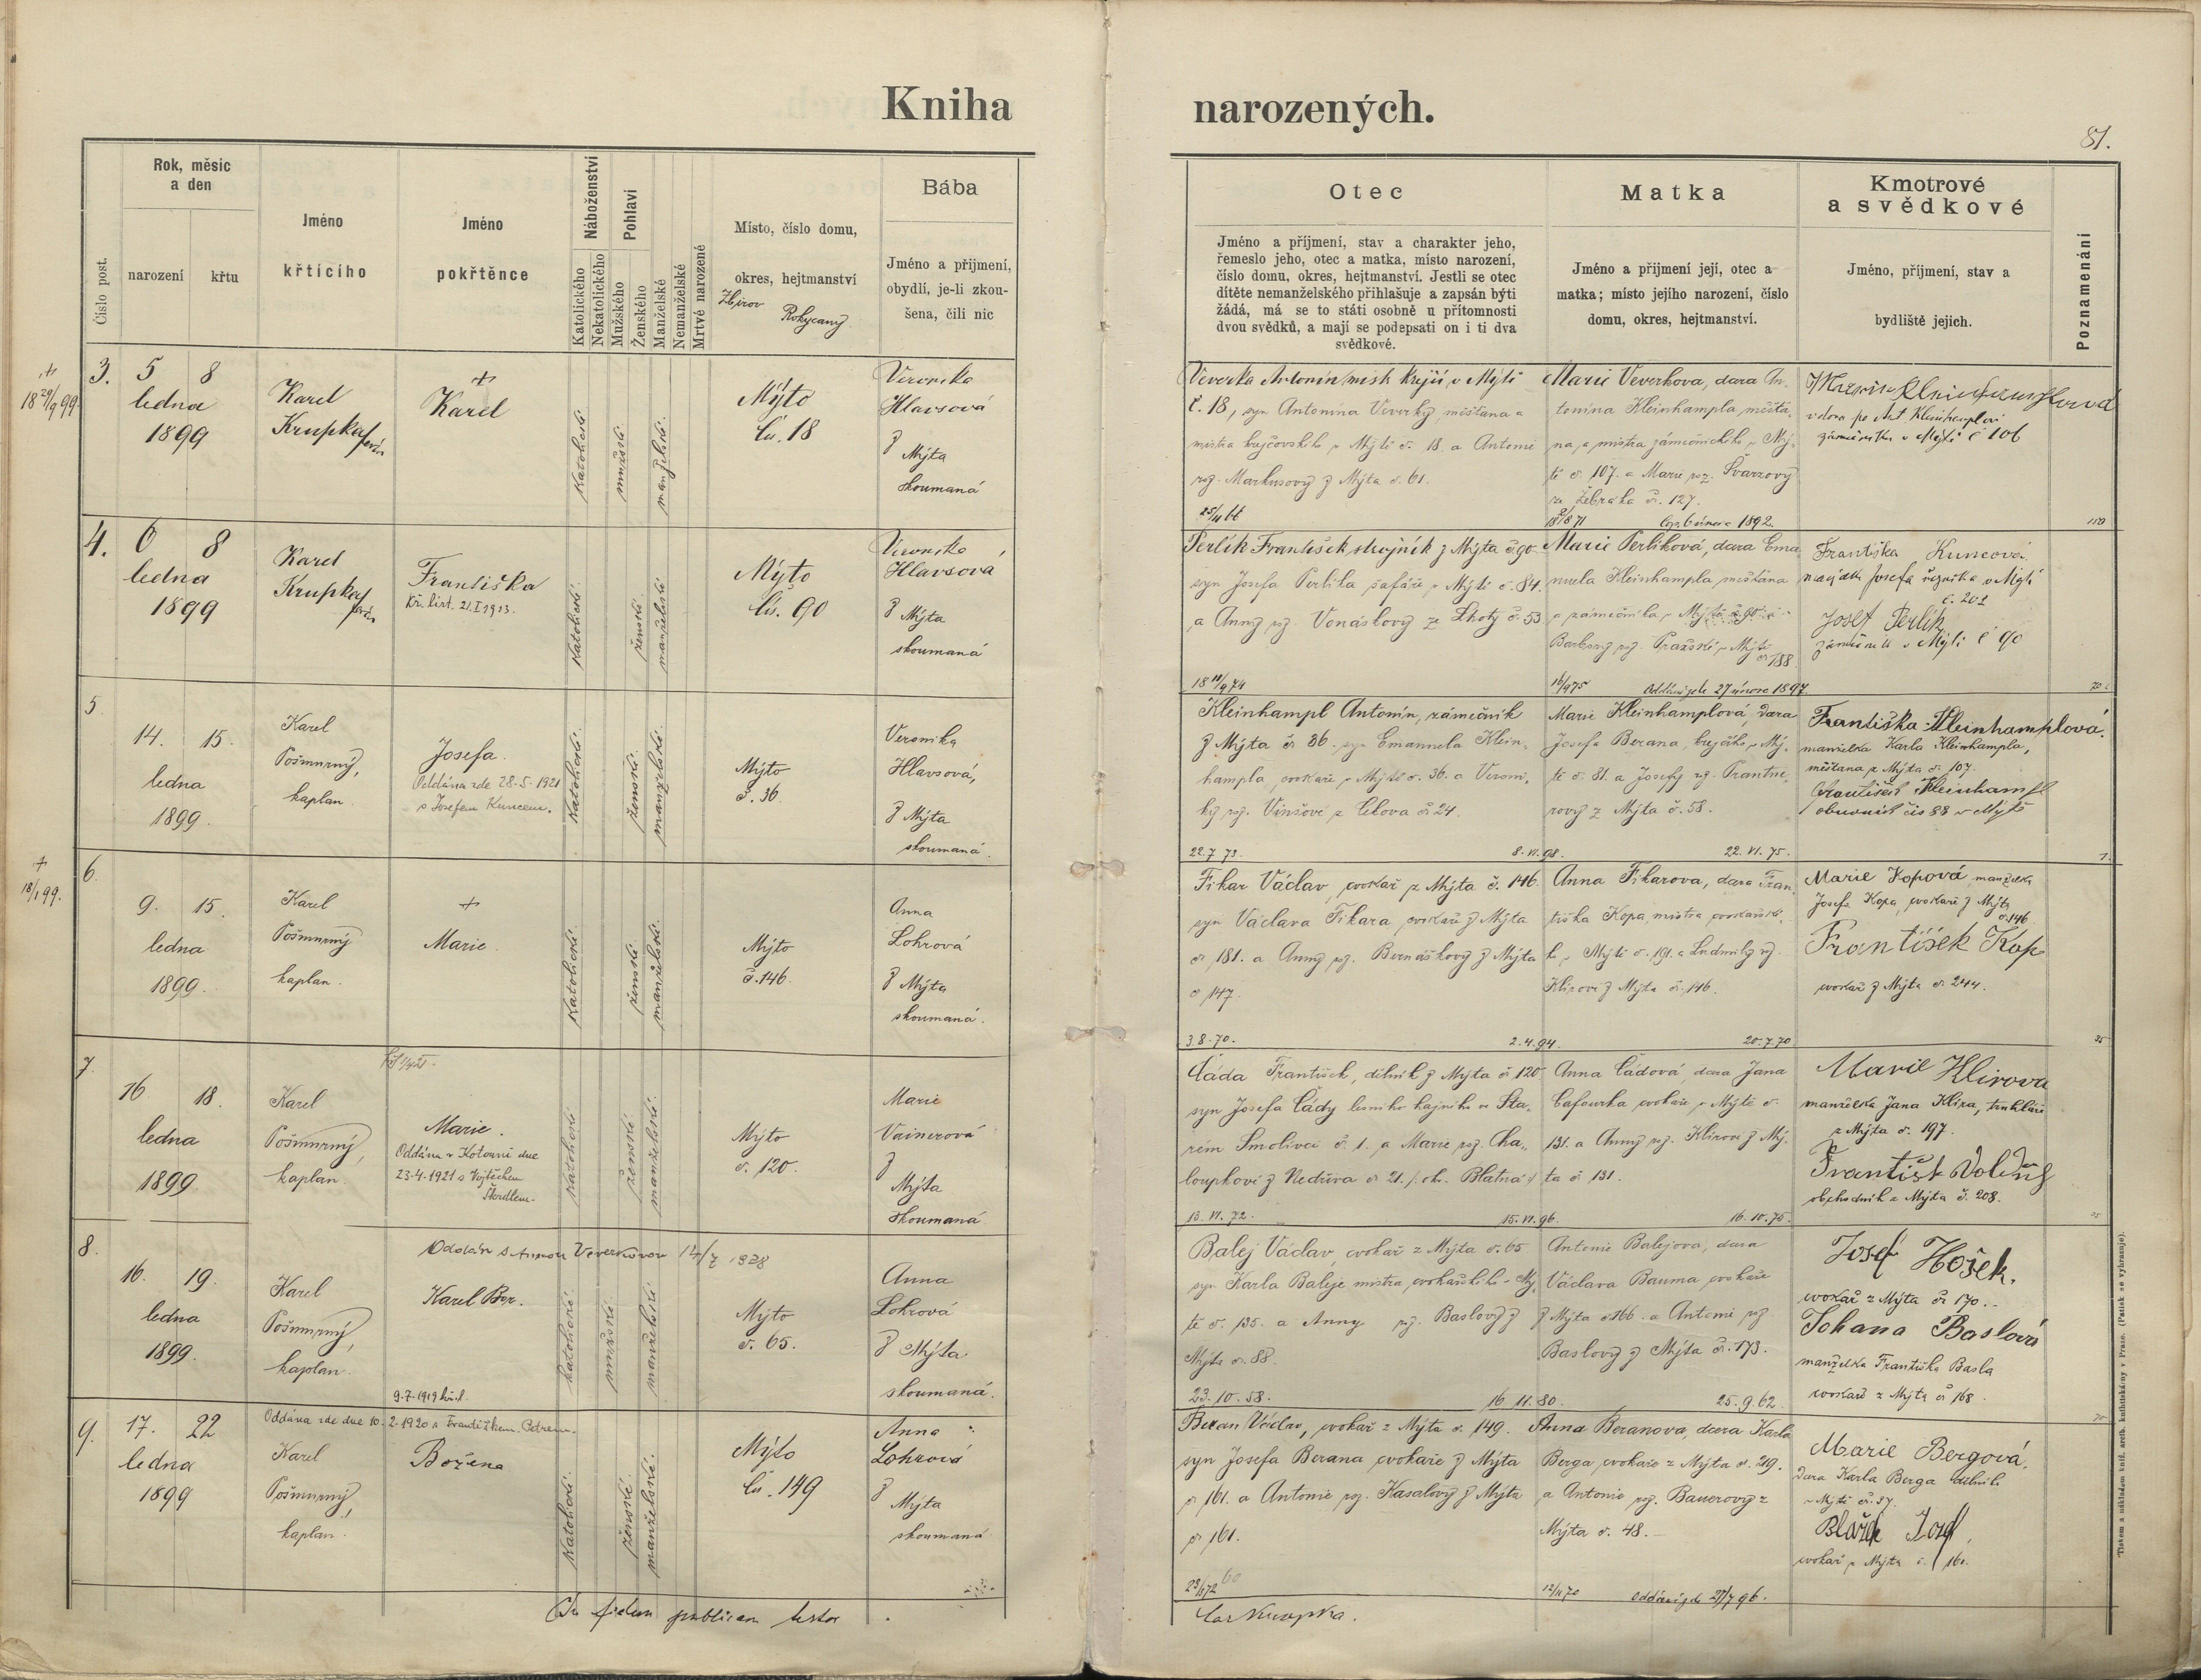 Kniha narozených.
81.
Číslo post.
Rok, měsíc
a den
narození
křtu
Jméno
křtícího
Jméno
pokřtěnce
Náboženství
Katolického
Nekatolického
Pohlaví
Mužského
Ženského
Manželské
Nemanželské
Mrtvě narozené
Místo, číslo domu,
okres, hejtmanství
Zbirov
Rokycany
Bába
Jméno a příjmení,
obydlí, je-li zkou-
šena, čili nic
Otec
Jméno a příjmení, stav a charakter jeho,
řemeslo jeho, otec a matka, místo narození,
číslo domu, okres, hejtmanství. Jestli se otec
dítěte nemanželského přihlašuje a zapsán býti
žádá, má se to státi osobně u přítomnosti
dvou svědků, a mají se podepsati on i ti dva
svědkové.
Matka
Jméno a příjmení její, otec a
matka; místo jejího narození, číslo
domu, okres, hejtmanství.
Kmotrové
a svědkové
Jméno, příjmení, stav a
bydliště jejich.
Poznamenání
+
18 29/9 99
3. 5 8
ledna
1899
Karel
Krupka
farář
+
Karel
katolické
mužské
manželské
Mýto
čís. 18
Veronika
Hlavsová
z Mýta
zkoumaná
Veverka Antonín mistr krejčí v Mýtě
č. 18, syn Antonína Veverky, měšťana a
mistra krejčovského v Mýtě č. 18 a Antonie
roz. Markusovy z Mýta č. 61.
25/4 66
Marie Veverkova, dcera An-
tonína Kleinhampla měšťa-
na, a mistra zámečnického v Mý-
tě č. 107. a Marie roz. Švarzovy
ze Žebráka č. 127.
1871
února 1892.
vdova po Ant. Kleinhamplovi
zámečníku v Mýtě č 106
4. 6 8
ledna
1899
Karel
Krupka
farář
Františka
Kř. list. 21.I 1913.
katolické
ženské
manželské
Mýto
čís. 90
Veronika
Hlavsová
z Mýta
zkoumaná
Perlík František strojník z Mýta č. 90
syn Josefa Perlíka šafáře v Mýtě č. 84.
a Anny roz. Vonáskovy ze Lhoty č. 53
18 11/9 74
Marie Perlíková, dcera Ema-
nuela Kleinhampla měšťana
a zámečníka v Mýtě č. 90 a
Barbory roz. Pražské v Mýtě
č. 188
16/9 75 Oddáni zde 27 února 1897.
Františka Kuncová
manželka Josefa řezníka v Mýtě
č. 201
Josef Perlík
zámečník v Mýtě č 90
5
14. 15.
ledna
1899.
Karel
Pošmurný,
kaplan
Josefa.
Oddána zde 28-5-1921
s Josefem Kuncem.
katolické
ženské
manželské
Mýto
č. 36
Veronika
Hlavsová,
z Mýta
zkoumaná.
Kleinhampl Antonín, zámečník
z Mýta č. 86. syn Emanuela Klein-
hampla, cvokaře v Mýtě č. 36. a Veroni-
ky roz.
22.7 73. 8. VI. 98.
Marie Kleinhamplová, dcera
Josefa Berana, krejčího v Mý-
tě č. 81. a Josefy roz. Frantne-
rovy z Mýta č. 58.
22. VI. 75.
Františka Kleinhamplová.
manželka Karla Kleinhampla,
měšťana z Mýta č. 107.
František Kleinhampl
obuvník čís 88 v Mýtě
+
18/1 99.
6.
9. 15.
ledna
1899.
Karel
Pošmurný
kaplan.
+
Marie
katolické
ženské
manželské
Mýto
č. 146
Anna
Lohrová
z Mýta
zkoumaná.
Fikar Václav, cvokař z Mýta č. 146.
syn Václava Fikara, cvokaře z Mýta
č. 181. a Anny roz. Bernáškovy z Mýta
č. 147.
3.8.70. 2.4.94.
Anna Fikarova, dcera Fran-
tiška Kopa, mistra cvokařské-
ho v Mýtě č. 191. a Ludmily roz.
Klírovi z Mýta č. 146.
20.7.70
Marie Kopová, manželka
Josefa Kopa, cvokaře z Mýta
č. 146
František Kop
cvokař z Mýta č. 244.
7.
16 18.
ledna
1899
Karel
Pošmurný,
kaplan
Marie.
Oddána v Kotouni dne
23-4-1921 s Vojtěchem
katolické
ženské
manželské
Mýto
č. 120.
Marie
Vainerová
z
Mýta
zkoumaná
Čáda František, dělník z Mýta č. 120
syn Josefa Čády lesního hajného ve Sta-
rém Smolivci č. 1. a Marie roz. Cha-
loupkovi z Nedřeva č. 21. (ok. Blatná)
13. VI. 72. 15. VI. 96.
Anna Čádová, dcera Jana
Cafourka cvokaře v Mýtě č.
131. a Anny roz. Klírovi z Mý-
ta č. 131.
16.10.75.
Marie Klirova
manželka Jana Klíra, truhláře
z Mýta č. 197.
František
obchodník z Mýta č. 208.
8.
16. 19.
ledna
1899.
Karel
Pošmurný,
kaplan.
Oddán s Annou Veverkovou 14/7 1928
Karel Bor.
9.7.1919 kř.l.
katolické
mužské
manželské
Mýto
č. 65.
Anna
Lohrová
z Mýta
zkoumaná.
Balej Václav, cvokař z Mýta č. 65
syn Karla Baleje mistra cvokařského v Mý-
tě č. 135. a Anny roz. Baslovy z
Mýta č. 88.
23.10.58. 16 11. 80.
Antonie Balejova, dcera
Václava Bauma cvokaře
z Mýta č. 166. a Antonie roz.
Baslovy z Mýta č. 173.
25.9.62.
Josef Hošek.
cvokař z Mýta č. 170.
Johana Baslová
manželka Františka Basla
cvokaře z Mýta č. 168.
9. 17. 22
ledna
1899
Oddána zde dne 10.2.1920 s Františkem Petrem.
Karel
Pošmurný,
kaplan.
Božena
katolické
ženské
manželské
Mýto
čís. 149
Anna
Lohrová
z
Mýta
zkoumaná
Beran Václav, cvokař z Mýta č. 149.
syn Josefa Berana cvokaře z Mýta
č. 161. a Antonie roz. Kasalovy z Mýta
č. 161.
Anna Beranova, dcera Karla
Berga cvokaře z Mýta č. 219.
a Antonie roz. Bauerovy z
Mýta č. 48.
12/11 70 Oddáni zde 27/7 96.
Marie Bergová,
dcera Karla Berga
v Mýtě č. 37.
Blažek Josef
cvokař z Mýta č. 160.
In fidem publicam testor
Car Krupka.
Tiskem a nákladem kníž. arcib. knihtiskárny v Praze. (Patisk se vyhrazuje).